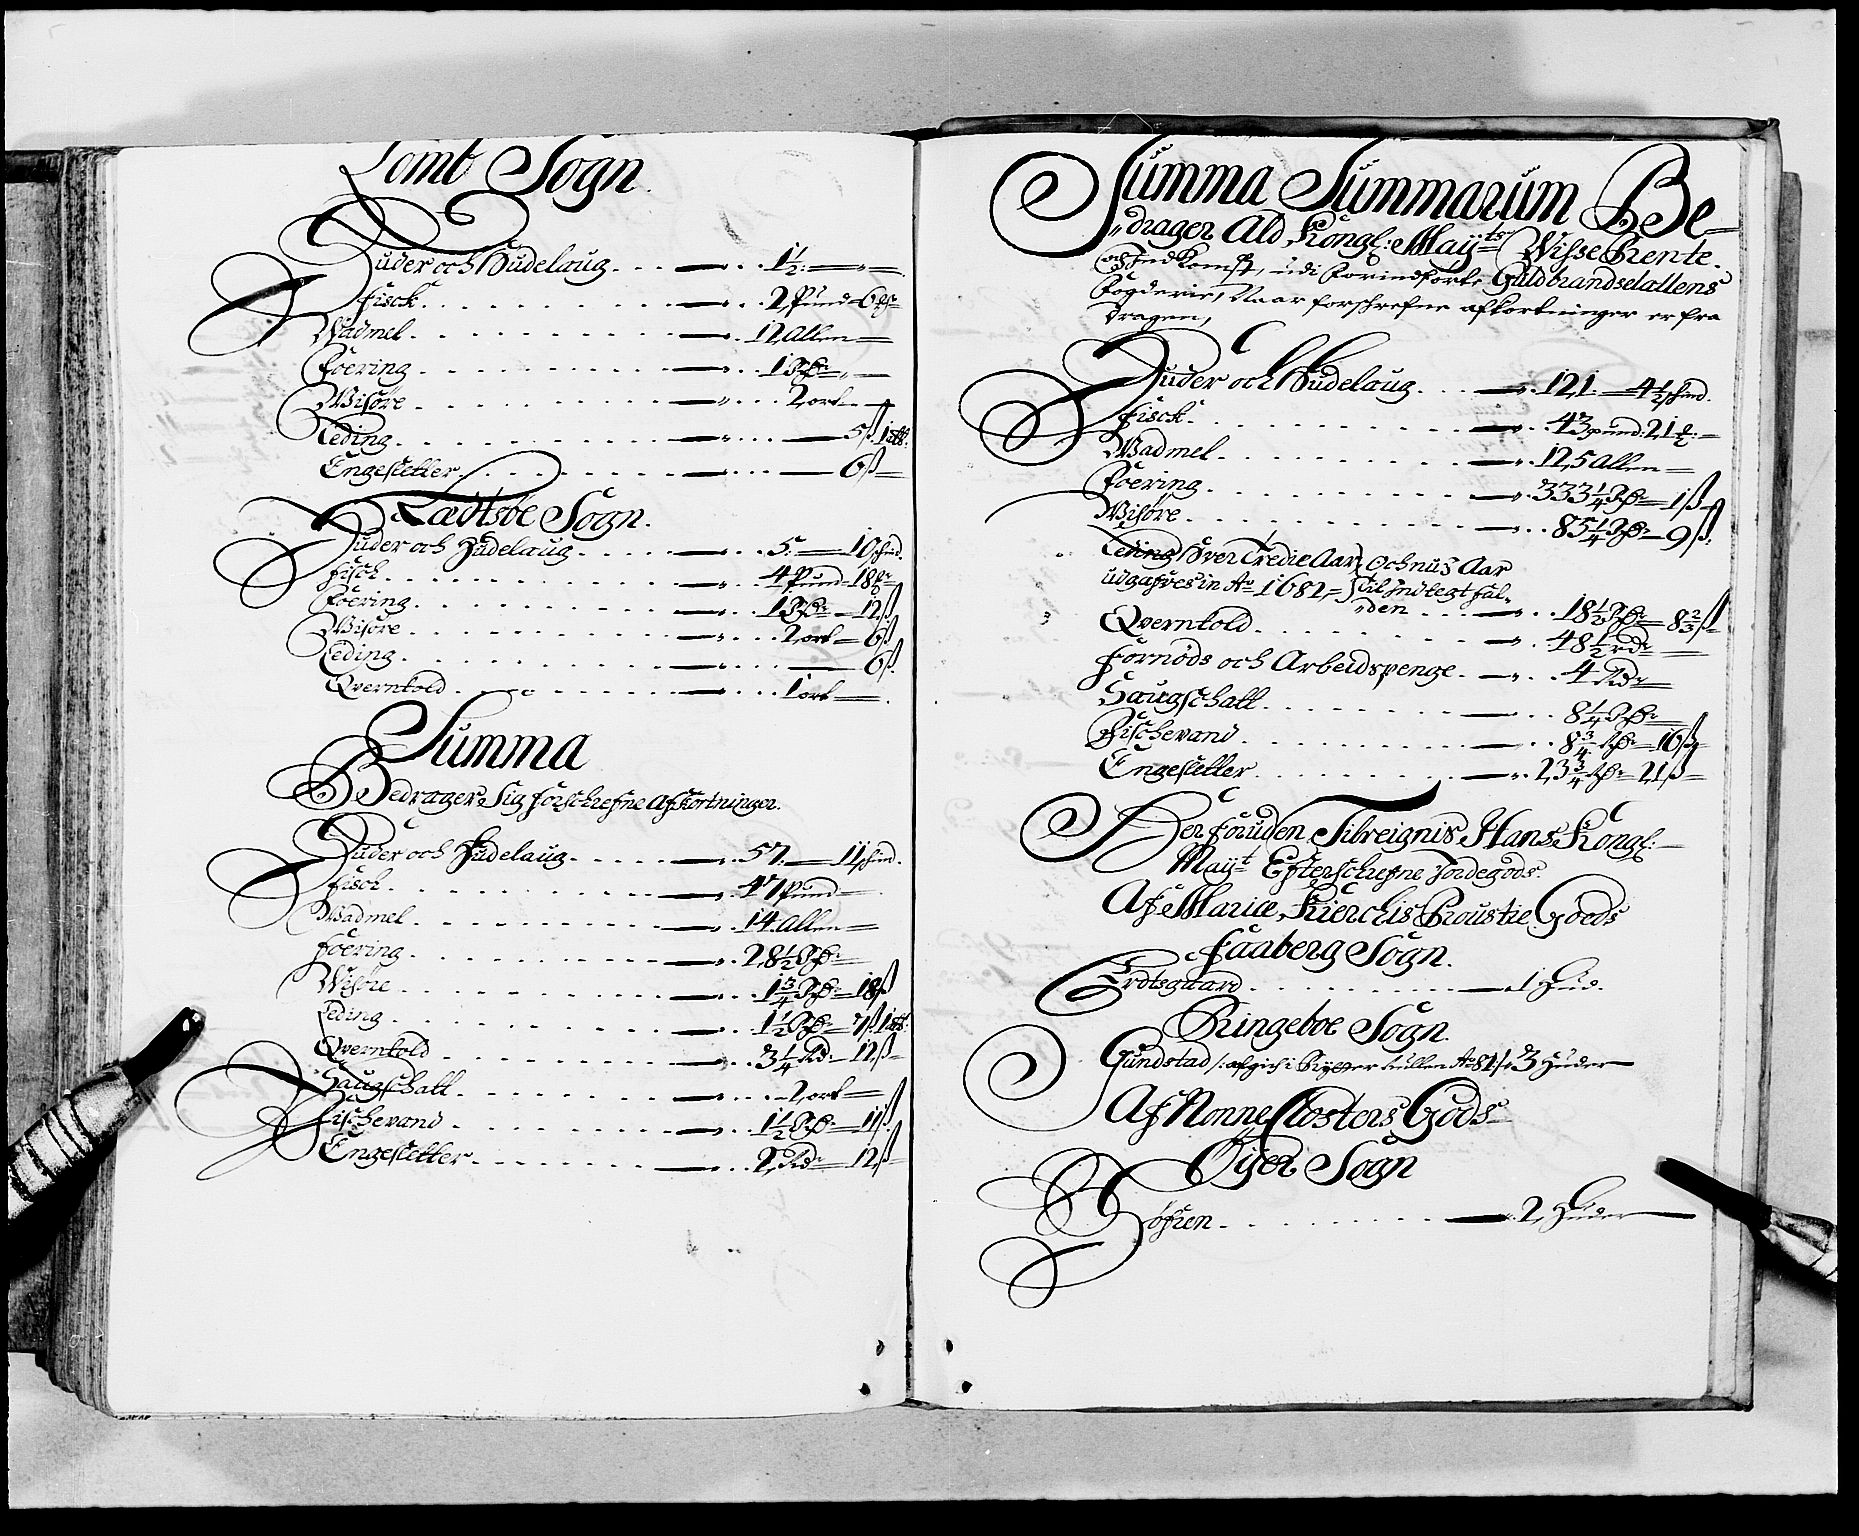 Lomb Sogn.
Huder och Hudelaug. - - - 1½
Fisck. - - - 2 Pund 6
Wadmel. - - - 12 Allen
Foering. - - - 1
Wisöre. - - - 2 ort
Leding. - - - 5ß 1
Engesletter. - - - 6ß
Lædtsöe Sogn.
Huder och Hudelaug. - - - 5. 10 schind.
Fisch. - - - 4 Pund 18
Foering. - - - 1 12ß
Wisöre. - - - 2 ort 6ß
Leding. - - - 6ß
Qverntold. - - - 1 ort
Summa
Bedrager Sig forschrefne Afkortninger.
Huder och Hudelaug. - - - 57. 11 schind.
Fisch. - - - 47 Pund
Wadmel. - - - 14 Allen
Foering. - - - 28½
Wisöre. - - - 1¾ 18ß
Leding. - - - 1½ 7ß 1
Qverntold. - - - 3¼ Rd 12ß
Saugschatt. - - - 2 ort
Fischevand. - - - 1½ 11ß
Engesletter. - - - 2 Rd 12ß
Summa Summarum Be=
drager Ald Kongl: Mayts Wisse Rente.
och Indkomst, udi forindførte Guldbrandsdallens
Fogderie, Naar forschrefne afkortninger er fra
dragen,
Huder och Hudelaug. - - - 121. 4½ schind.
Fisck. - - - 43 pund: 21
Wadmel. - - - 125 Allen
Foering. - - - 333¼ 1ß
Wisöre. - - - 85¼ 9ß.
Leding hver Tredie Aar, Och nu 3 Aar
udgafves in Ao 1682, Til Indtegt ful-
den - - - 18½ 8⅔ß
Qverntold. - - - 48½ rd
Førnöds och Arbeidspenge. - - - 4 Rd
Saugschatt. - - - 8¼
Fischevand. - - - 8¾ 16ß
Engesletter. - - - 23¾ 21ß
Der foruden Tilreignis Hans Kongl:
Mayt Efterschrefne Jordegods.
Af Mariæ Kierchis Proustie Goeds
Faaberg Sogn.
Erdtsgaard. - - - 1 Hud.
Ringeboe Sogn.
Gundstad /: afgich i Rytter Rullen Ao 81 :/ 3 Huder
Af Nonne Closters Gods
Öyer Sogn
- - - 2 Huder